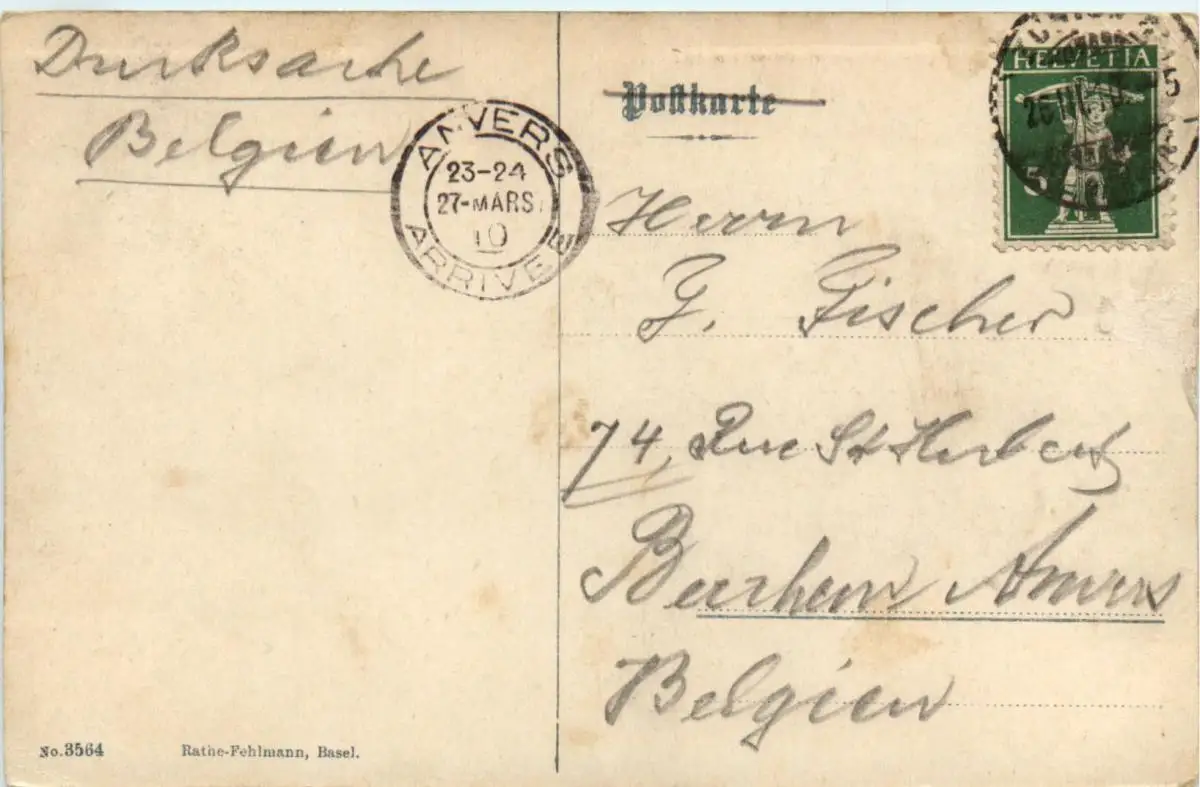 Drucksache
Belgien
ANVERS
23-24
27-MARS
10
ARRIVEE
Postkarte
HELVETIA
5
Herrn
J. Fischer
74, Rue St Hubert
Berchem Anvers
Belgien
No. 3564
Rathe-Fehlmann, Basel.